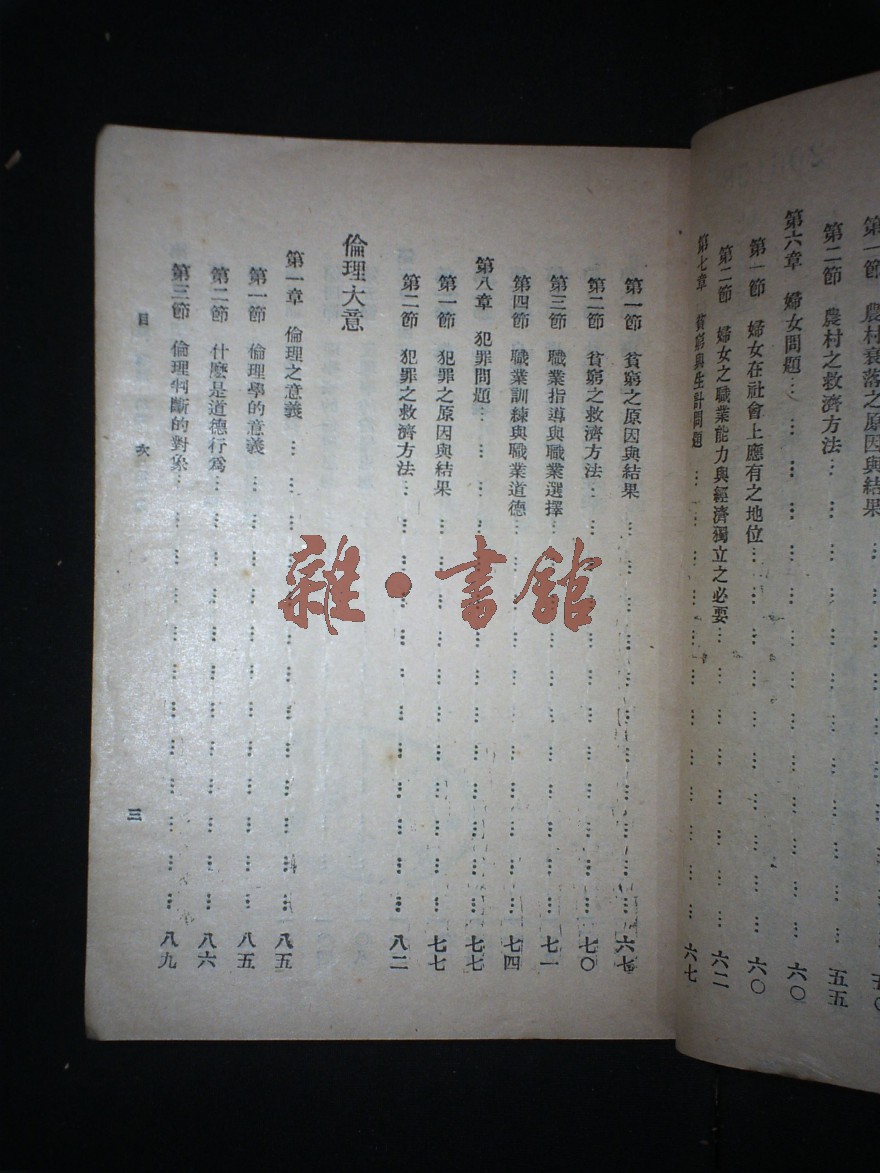 第一節　農村衰落之原因與結果…………五〇
第二節　農村之救濟方法…………五五
第六章　婦女問題…………六〇
第一節　婦女在社會上應有之地位…………六〇
第二節　婦女之職業能力與經濟獨立之必要…………六二
第七章　貧窮與生計問題…………六七
第一節　貧窮之原因與結果…………六七
第二節　貧窮之救濟方法…………七〇
第三節　職業指導與職業選擇…………七一
第四節　職業訓練與職業道德…………七四
第八章　犯罪問題…………七七
第一節　犯罪之原因與結果…………七七
第二節　犯罪之救濟方法…………八二
倫理大意
第一章　倫理之意義…………八五
第一節　倫理學的意義…………八五
第二節　什麽是道德行爲…………八六
第三節　倫理判斷的對象…………八九
目　次　三
雜·書館